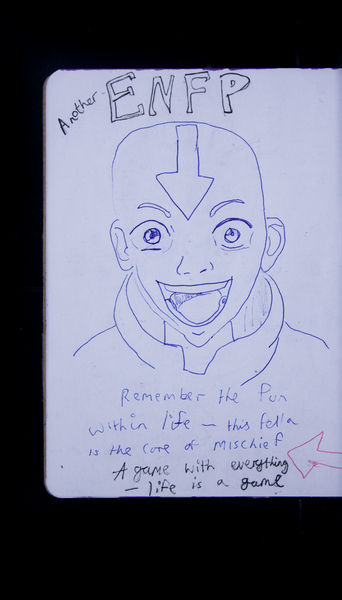 Another
ENFP
Remember the fun
within life – this fella
is the core of mischief
A game with everything
– life is a game